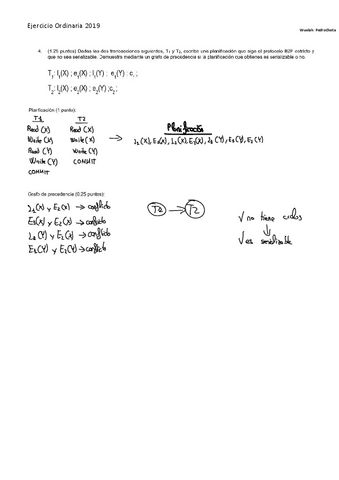 Ejercicio Ordinaria 2019
4. (1.25 puntos) Dadas las dos transacciones siguientes, T₁ y T₂, escribe una planificación que siga el protocolo B2F estricto y
que no sea serializable. Demuestra mediante un grafo de precedencia si la planificación que obtienes es serializable o no.
T₁: l₁(X) ; e₁(X) ; l₁(Y) ; e₁(Y) ; c₁ ;
T₂: l₂(X) ; e₂(X) ; e₂(Y) ;c₂ ;
Planificación (1 punto):
T1 T2
Read (X) Read (X)
Write (X) Write (X)
Read (Y) Write (Y)
Write (Y) COMMIT
COMMIT
Planificación
Grafo de precedencia (0.25 puntos):
→ conflicto
→ conflicto
→ conflicto
→ conflicto
T2 → T2
✓ no tiene ciclos
✓ es serializable